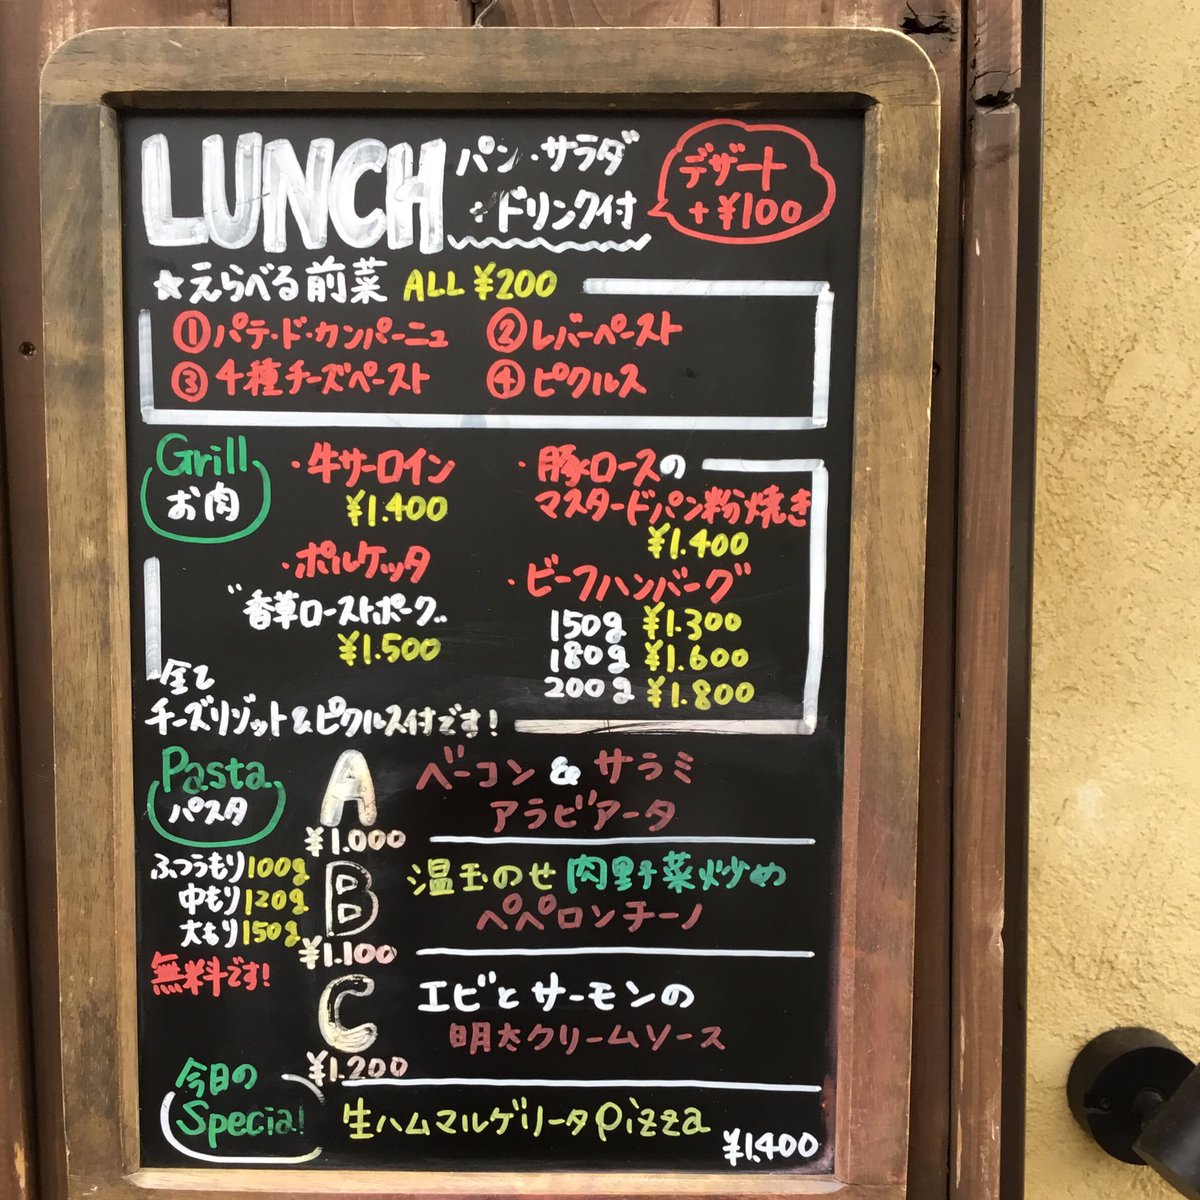 LUNCH パン・サラダ
・ドリンク付
デザート
+¥100
☆えらべる前菜 ALL ¥200
①パテ・ド・カンパーニュ ②レバーペースト
③4種チーズペースト ④ピクルス
Grill
お肉
・牛サーロイン
¥1.400
・豚ロースの
マスタードパン粉焼き
¥1.400
・ポルケッタ
"香草ローストポーク"
¥1.500
・ビーフハンバーグ
150g ¥1.300
180g ¥1.600
200g ¥1.800
全て
チーズリゾット&ピクルス付です!
Pasta
パスタ
ふつうもり100g
中もり120g
大もり150g
無料です!
A
¥1.000
ベーコン&サラミ
アラビアータ
B
¥1.100
温玉のせ肉野菜炒め
ペペロンチーノ
C
¥1.200
エビとサーモンの
明太クリームソース
今日の
Special
生ハムマルゲリータpizza
¥1.400